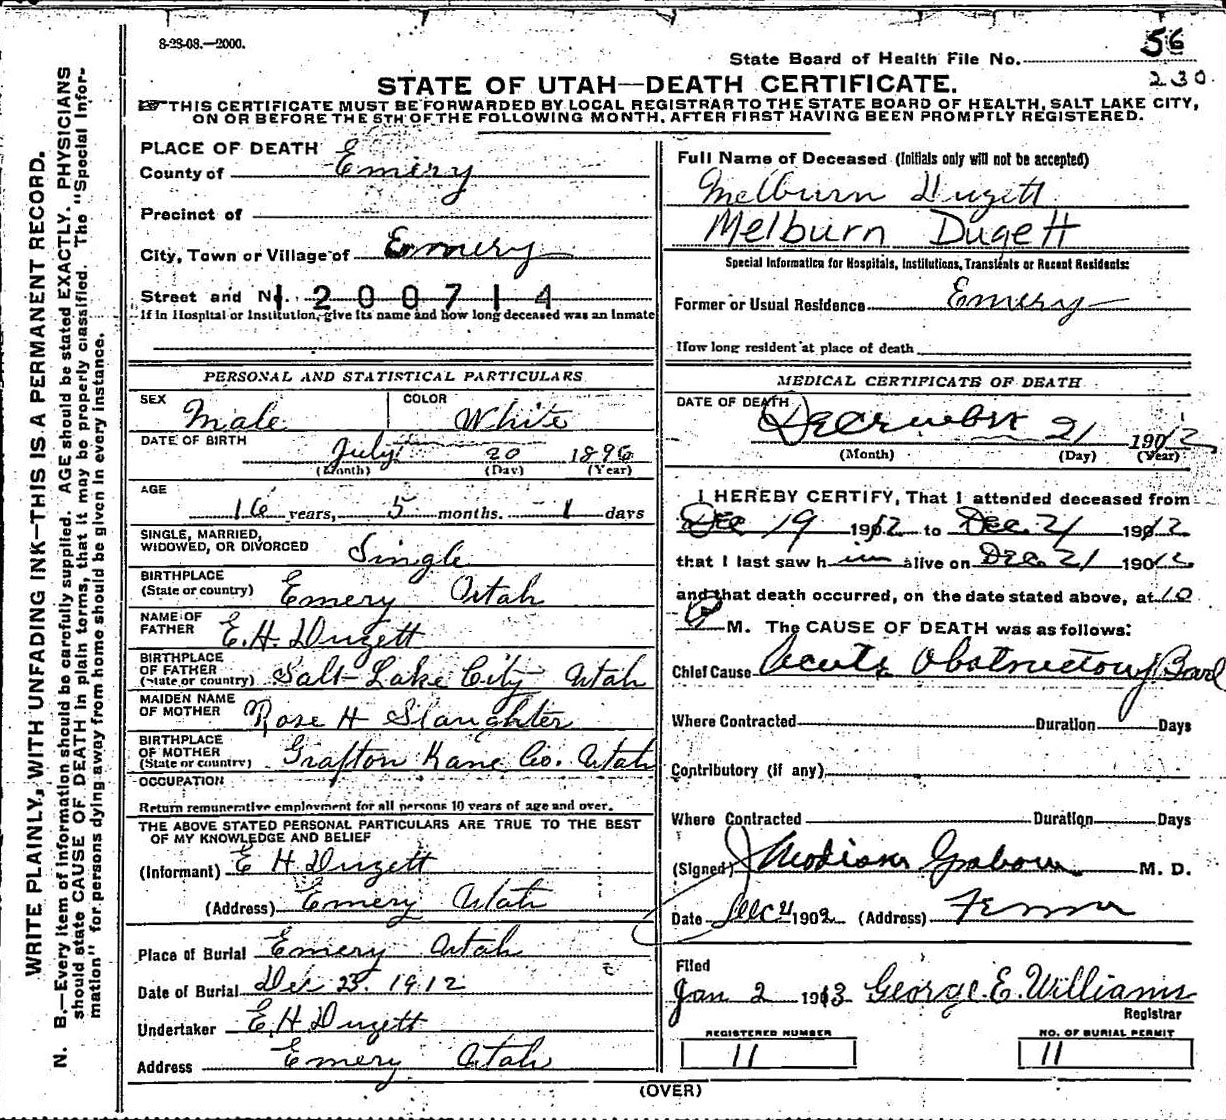 8-28-08.—2000.
State Board of Health File No. 56
230
STATE OF UTAH—DEATH CERTIFICATE.
THIS CERTIFICATE MUST BE FORWARDED BY LOCAL REGISTRAR TO THE STATE BOARD OF HEALTH, SALT LAKE CITY,
ON OR BEFORE THE 5TH OF THE FOLLOWING MONTH, AFTER FIRST HAVING BEEN PROMPTLY REGISTERED.
WRITE PLAINLY, WITH UNFADING INK—THIS IS A PERMANENT RECORD.
N. B.—Every item of information should be carefully supplied. AGE should be stated EXACTLY. PHYSICIANS
should state CAUSE OF DEATH in plain terms, that it may be properly classified. The "Special Infor-
mation" for persons dying away from home should be given in every instance.
PLACE OF DEATH
County of Emery
Precinct of
City, Town or Village of Emery
Street and No. 1200714
If in Hospital or Institution, give its name and how long deceased was an inmate
PERSONAL AND STATISTICAL PARTICULARS
SEX Male COLOR White
DATE OF BIRTH
July 20 1896
(Month) (Day) (Year)
AGE
16 years, 5 months. 1 days
SINGLE, MARRIED,
WIDOWED, OR DIVORCED Single
BIRTHPLACE
(State or country) Emery Utah
NAME OF
FATHER E. H. Dugett
BIRTHPLACE
OF FATHER
(State or country) Salt Lake City Utah
MAIDEN NAME
OF MOTHER Rose H Slaughter
BIRTHPLACE
OF MOTHER
(State or country) Grafton Kane Co. Utah
OCCUPATION
Return remunerative employment for all persons 10 years of age and over.
THE ABOVE STATED PERSONAL PARTICULARS ARE TRUE TO THE BEST
OF MY KNOWLEDGE AND BELIEF
(Informant) E H Dugett
(Address) Emery Utah
Place of Burial Emery Utah
Date of Burial Dec 23. 1912
Undertaker E. H Dugett
Address Emery Utah
Full Name of Deceased (Initials only will not be accepted)
Melburn Dugett
Melburn Dugett
Special Information for Hospitals, Institutions, Transients or Recent Residents:
Former or Usual Residence Emery
How long resident at place of death
MEDICAL CERTIFICATE OF DEATH
DATE OF DEATH
December 21 1912
(Month) (Day) (Year)
I HEREBY CERTIFY, That I attended deceased from
Dec 19 1912 to Dec. 21 1912
that I last saw him alive on Dec. 21 1912
and that death occurred, on the date stated above, at 10
P M. The CAUSE OF DEATH was as follows:
Chief Cause Acute Obstructory Bowl
Where Contracted Duration Days
Contributory (if any)
Where Contracted Duration Days
(Signed) M. D.
Date Dec 1902 (Address)
Filed
Jan 2 1913 George E. Williams
Registrar
REGISTERED NUMBER
11
NO. OF BURIAL PERMIT
11
(OVER)